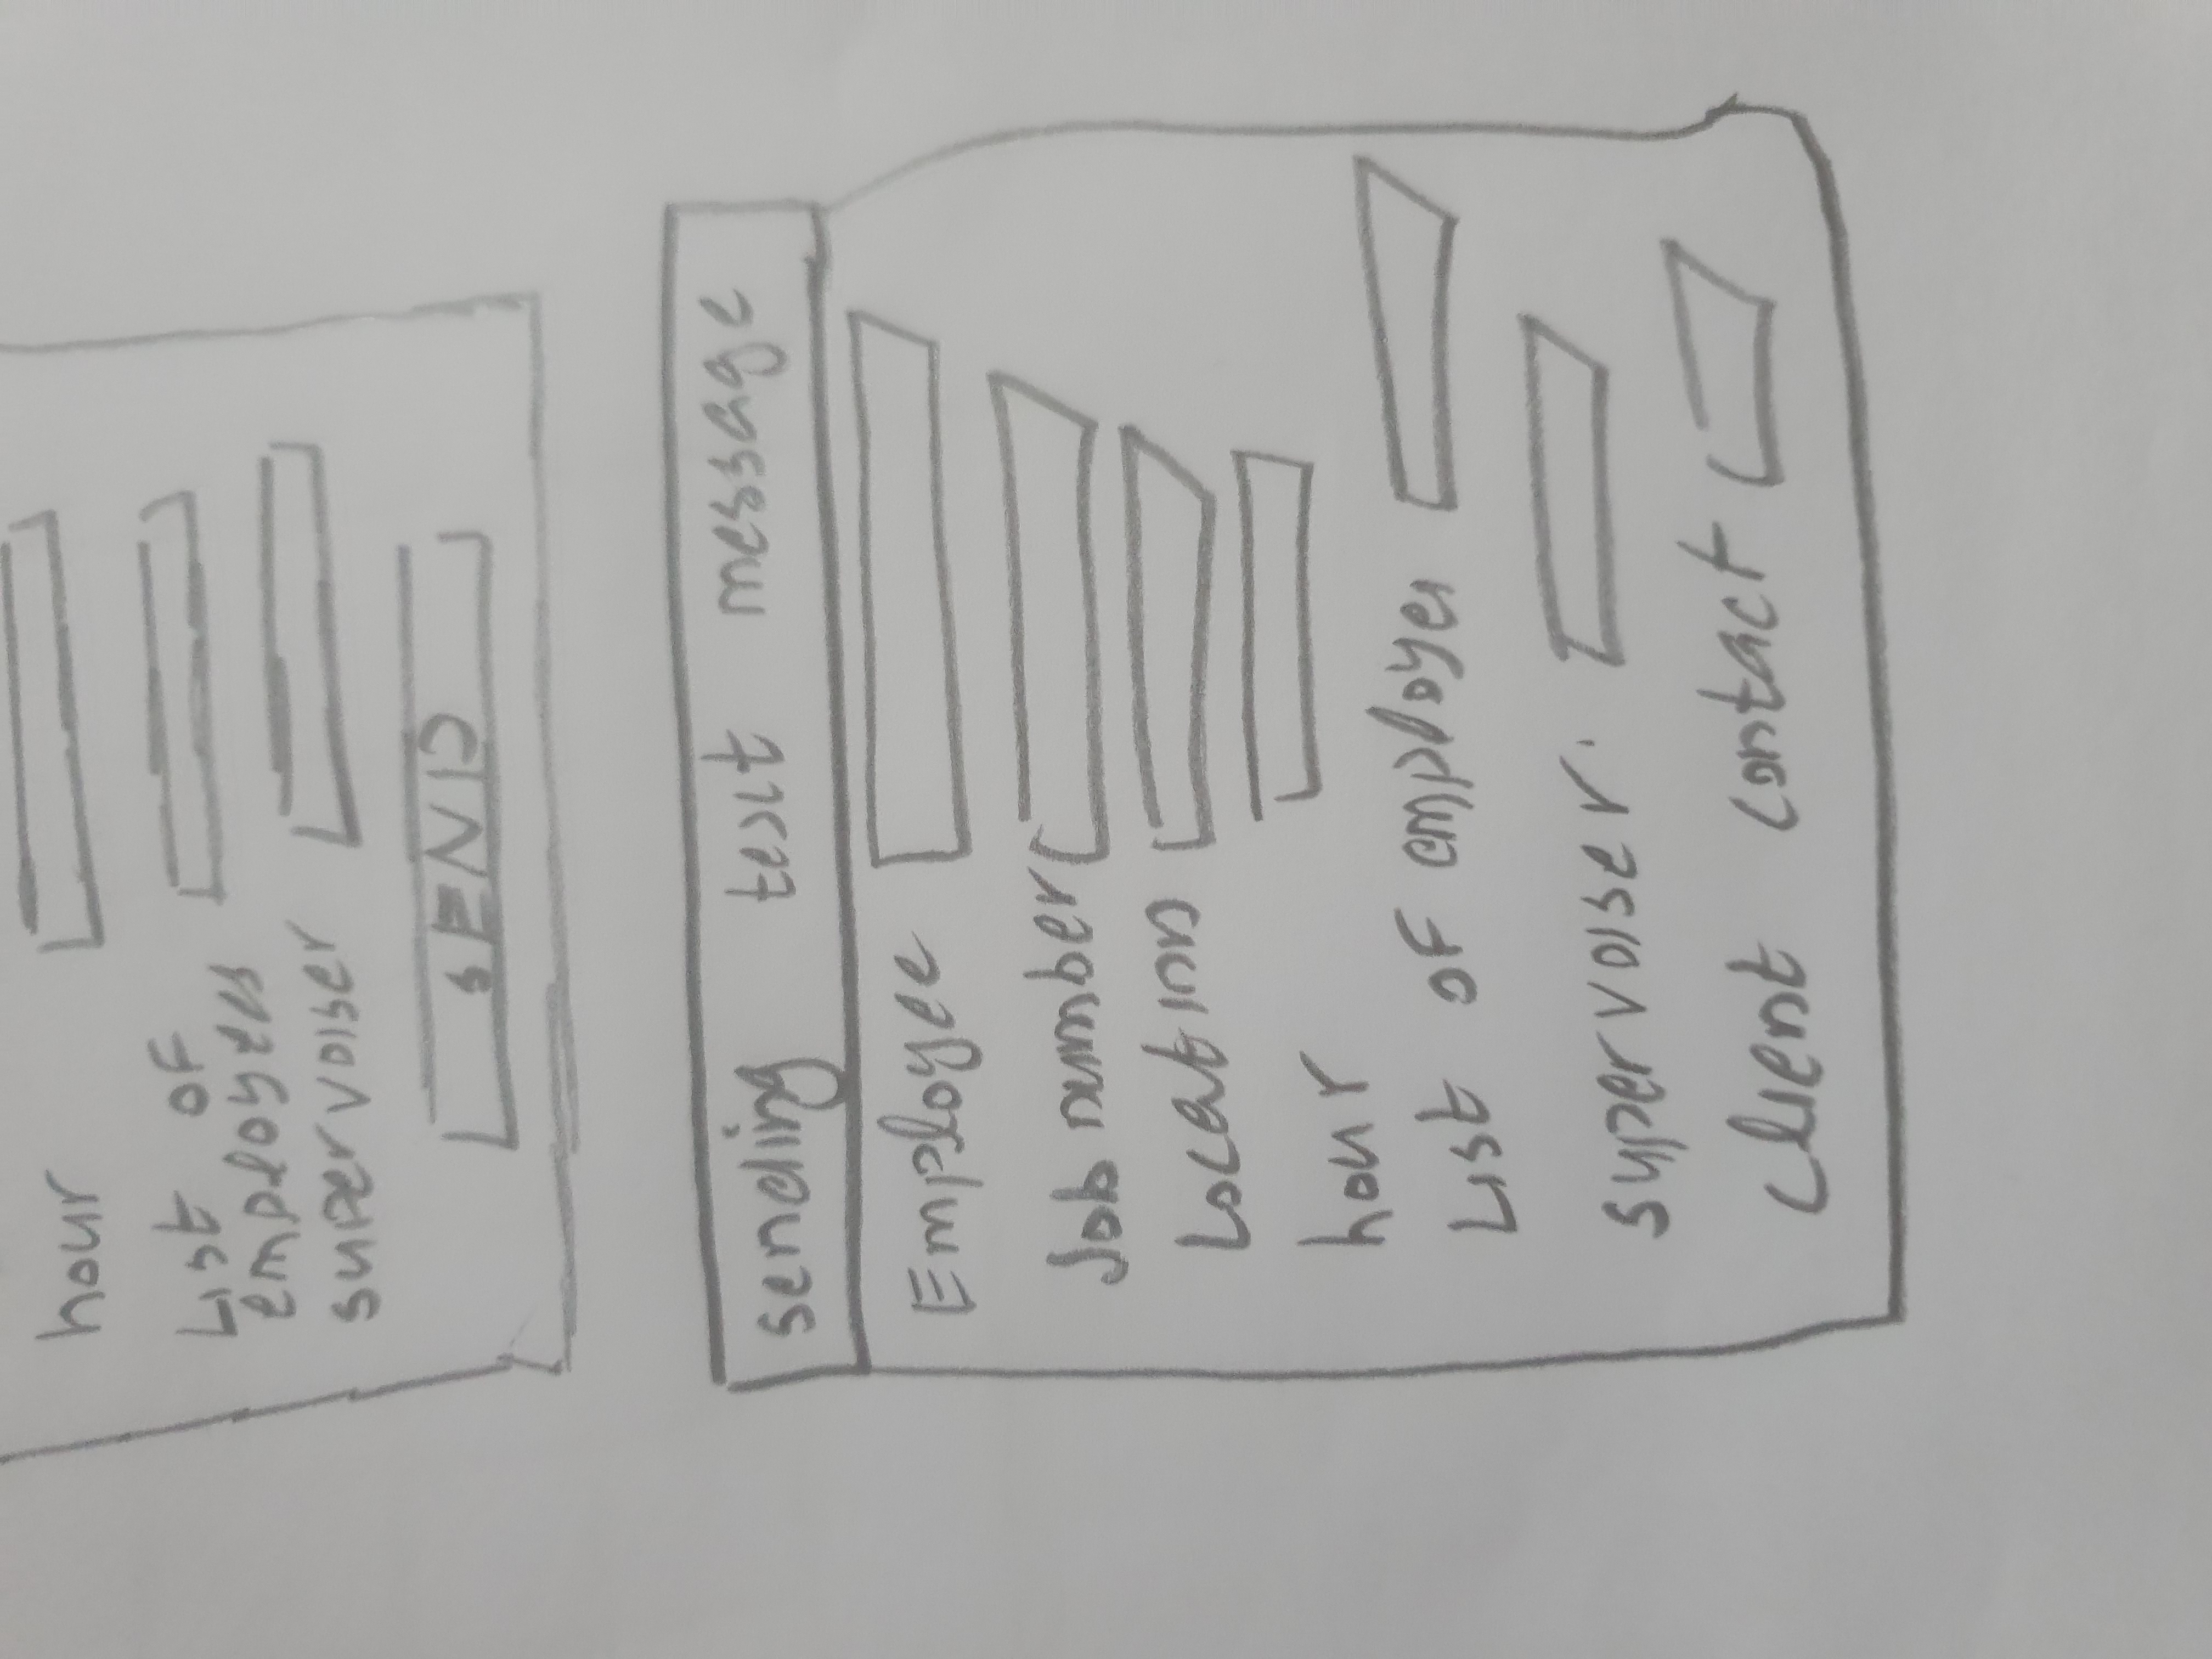 hour
List of
employees
supervoiser
SEND
sending text message
Employee
Job number
Location
hour
List of employes
supervoiser
client contact